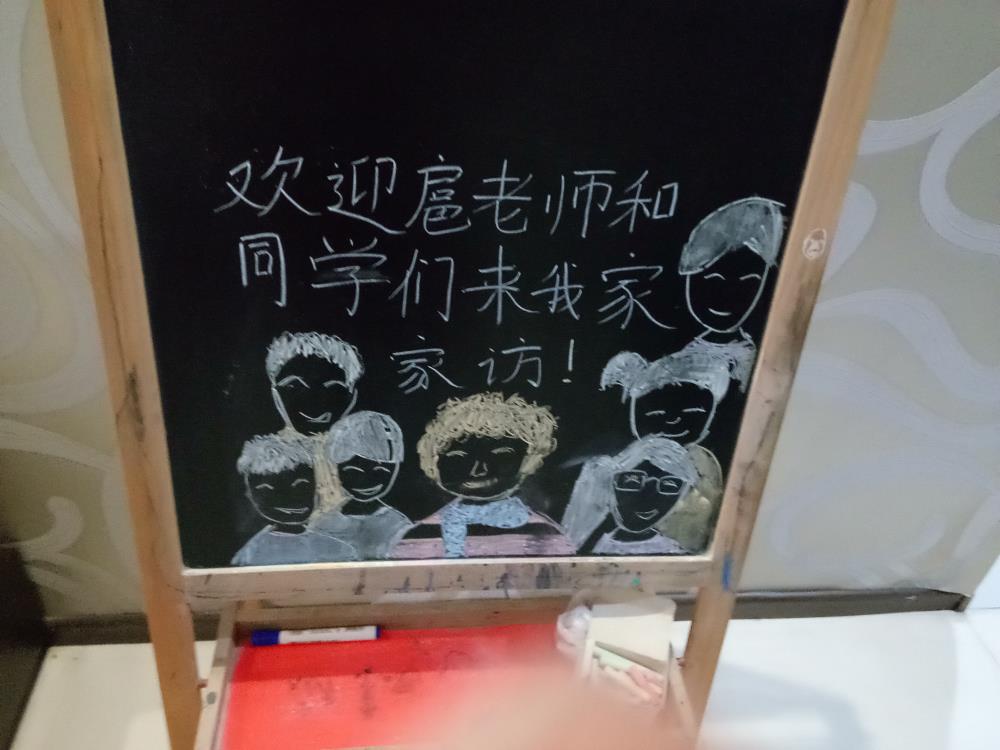 欢迎扈老师和
同学们来我家
家访!